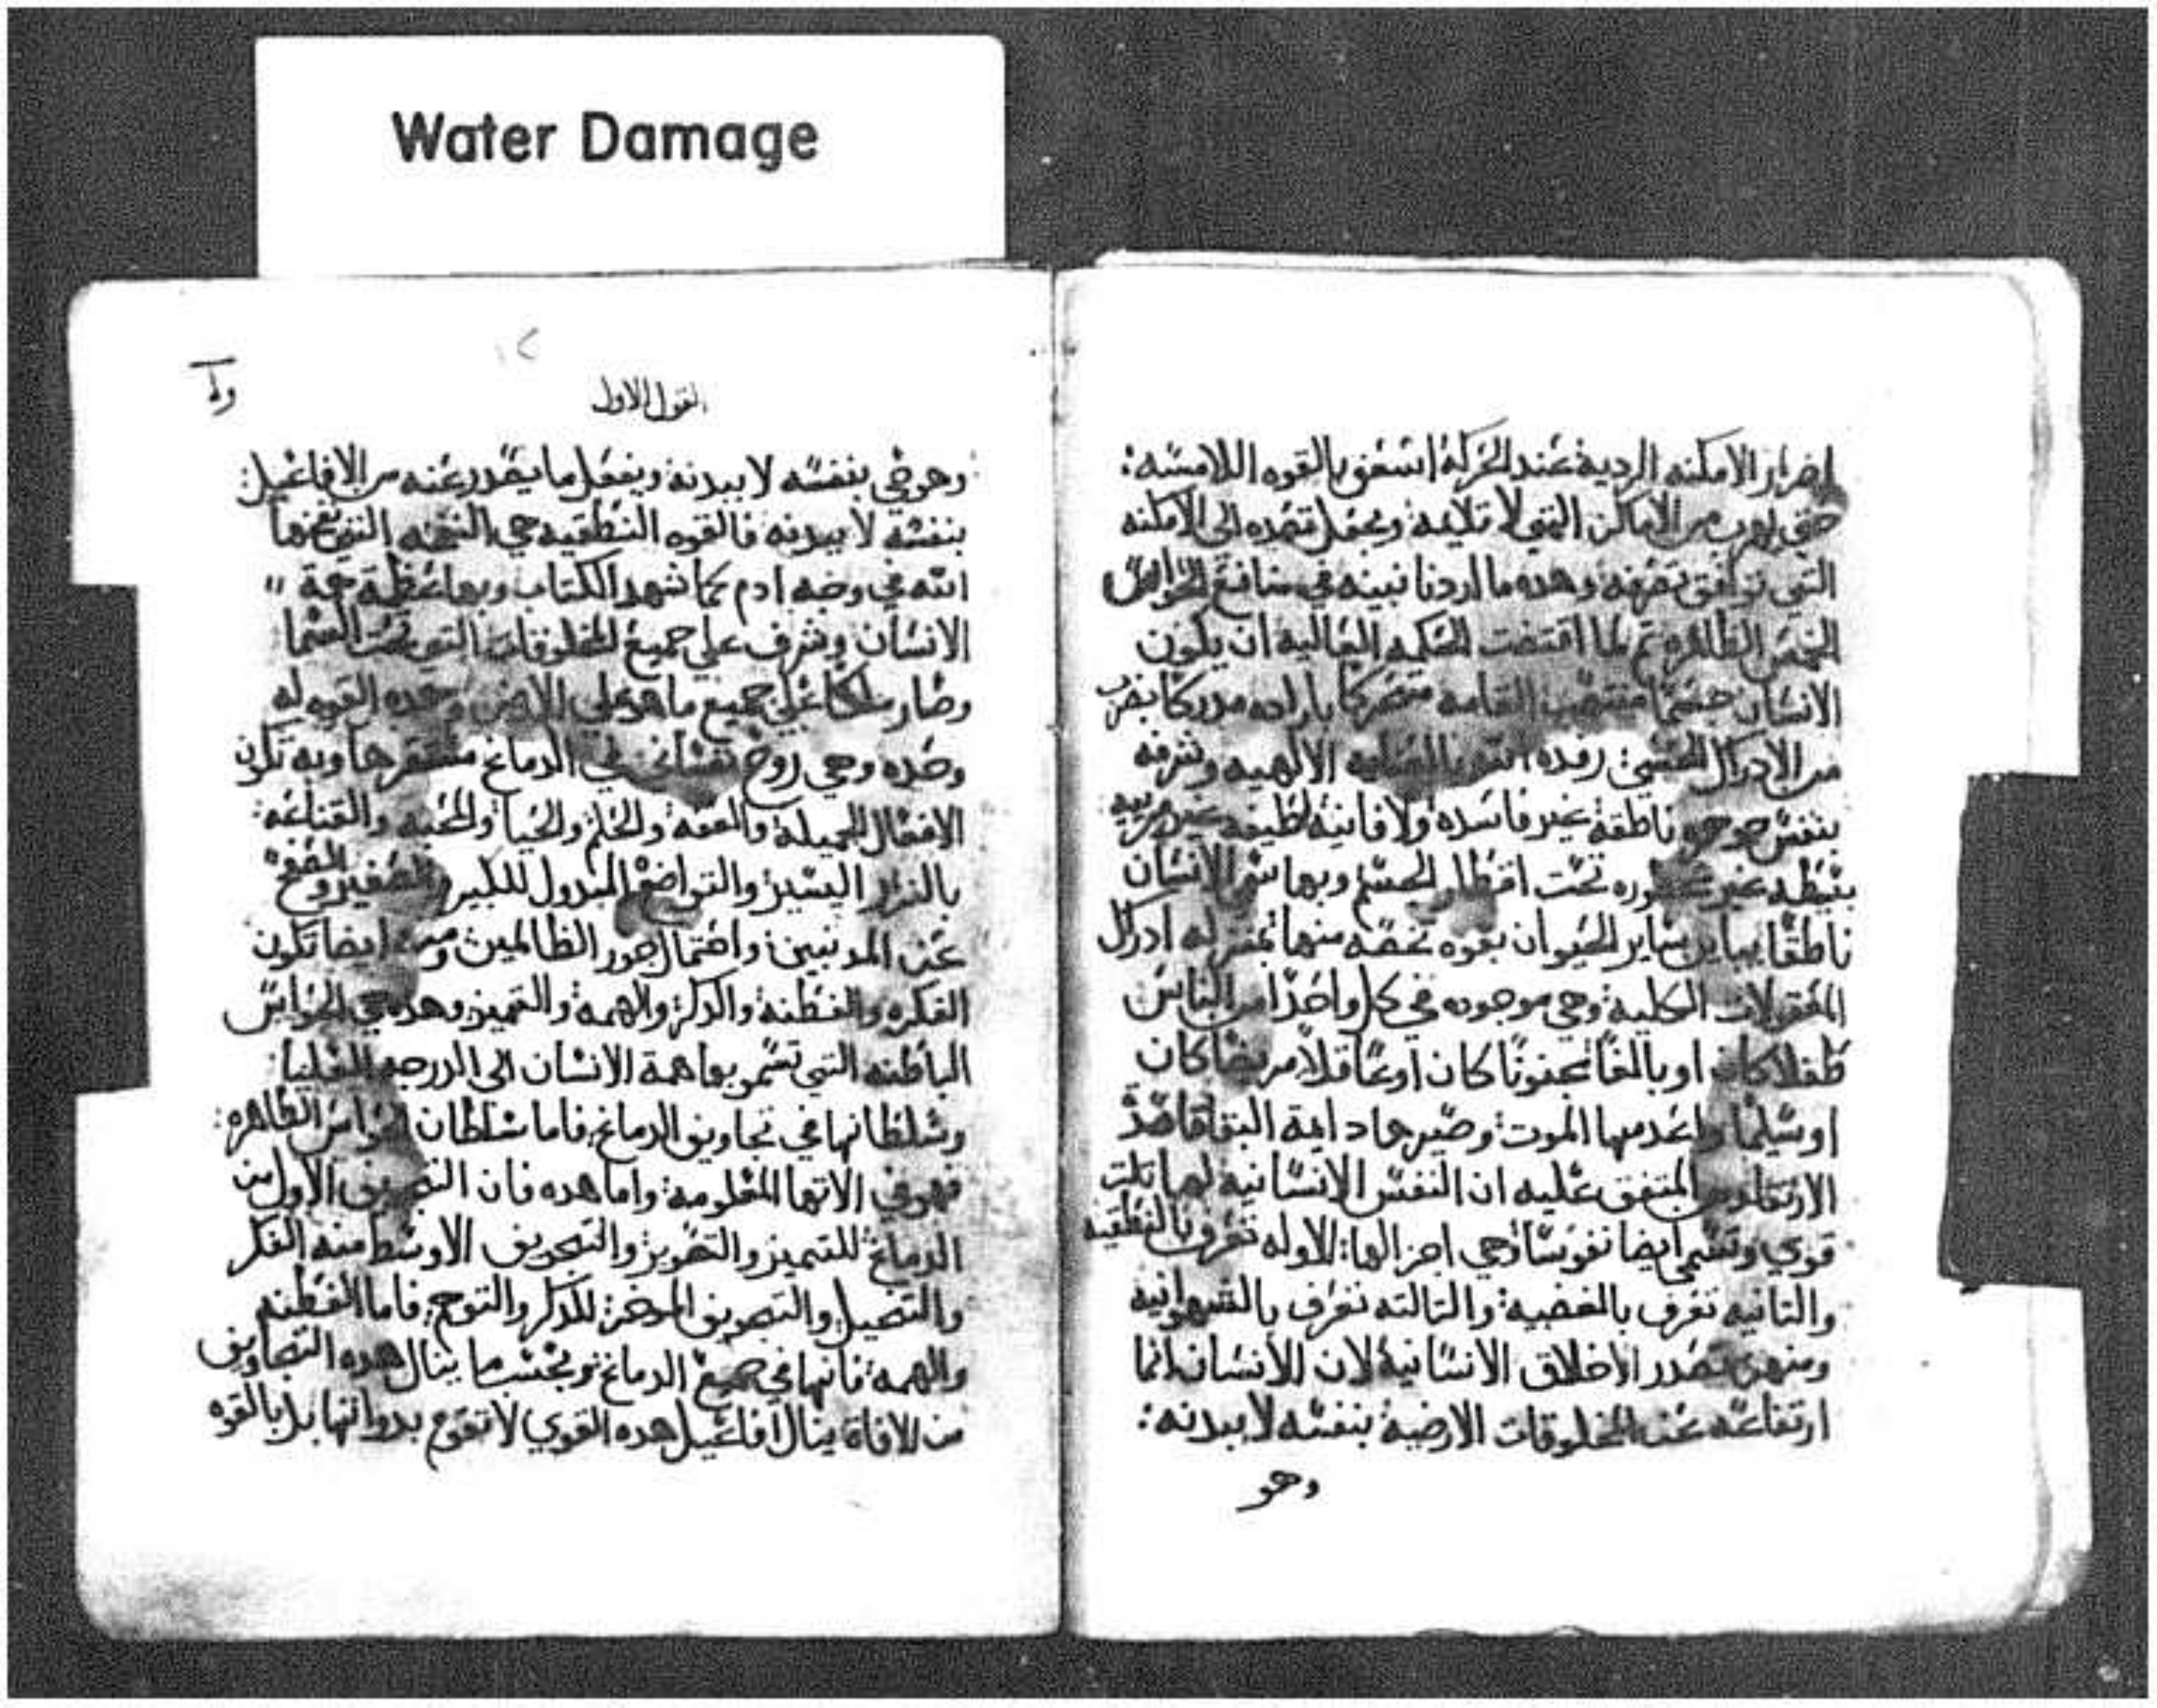 Water Damage
اضرار الامكنه الرديه عند الحركه اسعفو بالقوه اللامسه:
حتي يهرب من الاماكن التي لا تلايمه ويجعل قصده الي الامكنه
التي توافق وهده ما اردنا نبينه في منافع الحواس
الخمس الظاهره ثم لما اقتضت الحكمه العاليه ان يكون
الانسان جسما منتصب القامه متحركا باراده مدركا
من الادراك الحسي: رفده الله الالهيه وشرفه
بنفس جوهريه ناطقه غير فاسده ولا فانيه لطيفه غير مرييه
بسيطه غير محصوره تحت اقطار الجسم وبها سمي الانسان
ناطقا يباين ساير الحيوان بقوه تخصه منها ادراك
المعقولات الكليه وهي موجوده في كل واحد من الناس
طفلا كان او بالغا مجنونا كان او عاقلا مريضا كان
او سليما واعدمها الموت وصيرها دايمة البقا قاصد
المتفق عليه ان النفس الانسانيه لها تلت
قوي وتسمي ايضا نفوسا وهي اجزالها: الاوله تعرف بالنطقيه
والتانيه تعرف بالغضبيه والتالته تعرف بالشهوانيه
ومنهن تصدر الاخلاق الانسانيه لان الانسان انما
ارتفاعه عن المخلوقات الارضيه بنفسه لا ببدنه:
وهو
القول الاول
وهو حي بنفسه لا ببدنه ويفعل ما يصدر عنه من الافاعيل:
بنفسه لا ببدنه فالقوه النطقيه هي النسمه التي نفخها
الله في وجه ادم كما شهد الكتاب وبها
الانسان وشرف علي جميع المخلوقات التي تحت السما
وصار ملكا علي جميع ما هو علي الارض وهده القوه له
وحده وهي روح نفساني في الدماغ مستقرها وبه تكون
الافعال الجميله والعفه والحلم والحيا والمحبه والقناعه:
بالنزر اليسير والتواضع المبدول للكبير والصغير والصفح
عن المدنبين واحتمال جور الظالمين ومنه ايضا تكون
الفكره والفطنه والدكر والهمه والتمييز وهده هي الحواس
الباطنه التي تسمو بها همة الانسان الي الدرجه العليا:
وسلطانها في تجاويف الدماغ فاما سلطان الحواس الظاهره:
فهو في الاتها المعلومه واما هده فان التجويف الاول من
الدماغ للتمييز والتصوير والتجويف الاوسط منه الفكر
والتخييل والتجويف الموخر: للدكر والتوهم فاما الفطنه
والهمه فانها في جميع الدماغ وبحسب ما ينال هده التجاويف
من الافاة ينال افاعيل هده القوي لا تقوم بدواتها بل بالقوه